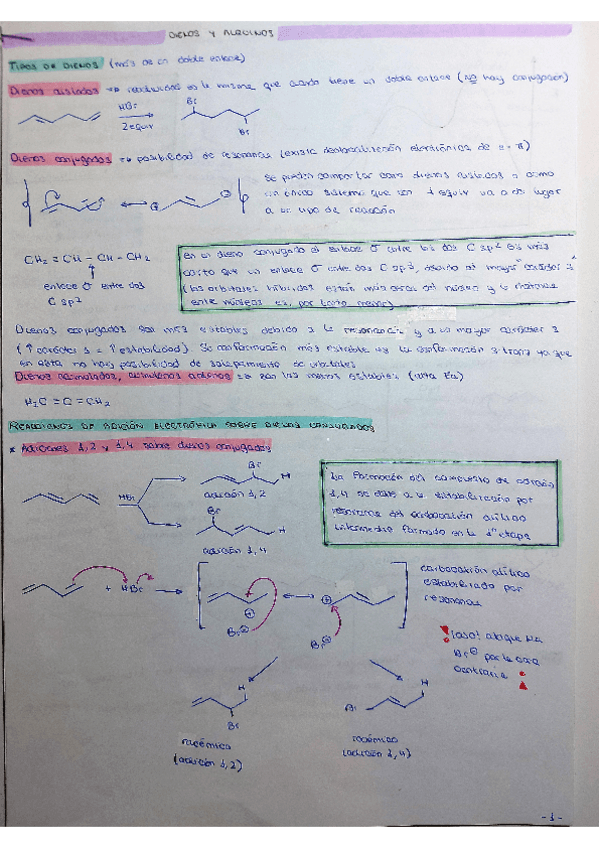 DIENOS Y ALQUINOS
TIPOS DE DIENOS (más de un doble enlace)
Dienos aislados → reactividad es la misma que cuando tiene un doble enlace (NO hay conjugación)
HBr
2 equiv
Br
Br
Dienos conjugados → posibilidad de resonancia (existe deslocalización electrónica de e- π)
Se pueden comportar como dienos aislados o como
un único sistema que con 1 equiv va a dar lugar
a un tipo de reacción
CH2 = CH - CH - CH2
enlace σ entre dos
C sp2
En un dieno conjugado el enlace σ entre los dos C sp2 es más
corto que un enlace σ entre dos C sp3, debido al mayor carácter s
(los orbitales híbridos están más cerca del núcleo y la distancia
entre núcleos es, por tanto, menor)
Dienos conjugados son más estables debido a la resonancia y a un mayor carácter s
(↑ carácter s = ↑ estabilidad). Su conformación más estable es la conformación s-trans ya que
en esta no hay posibilidad de solapamiento de orbitales
Dienos acumulados, → son los menos estables (alta Ea)
H2C = C = CH2
REACCIONES DE ADICIÓN ELECTRÓFILA SOBRE DIENOS CONJUGADOS
* Adiciones 1,2 y 1,4 sobre dienos conjugados
HBr
Br
H
adición 1,2
Br
H
adición 1,4
La formación del compuesto de adición
1,4 se debe a la estabilización por
resonancia del carbocatión alílico
intermedio formado en la 1ª etapa
+ HBr
Br⊖
Br⊖
carbocatión alílico
estabilizado por
resonancia
¡Ojo! ataque del
Br⊖ por la cara
contraria
H
Br
racémico
(adición 1,2)
H
Br
racémico
(adición 1,4)
- 1 -